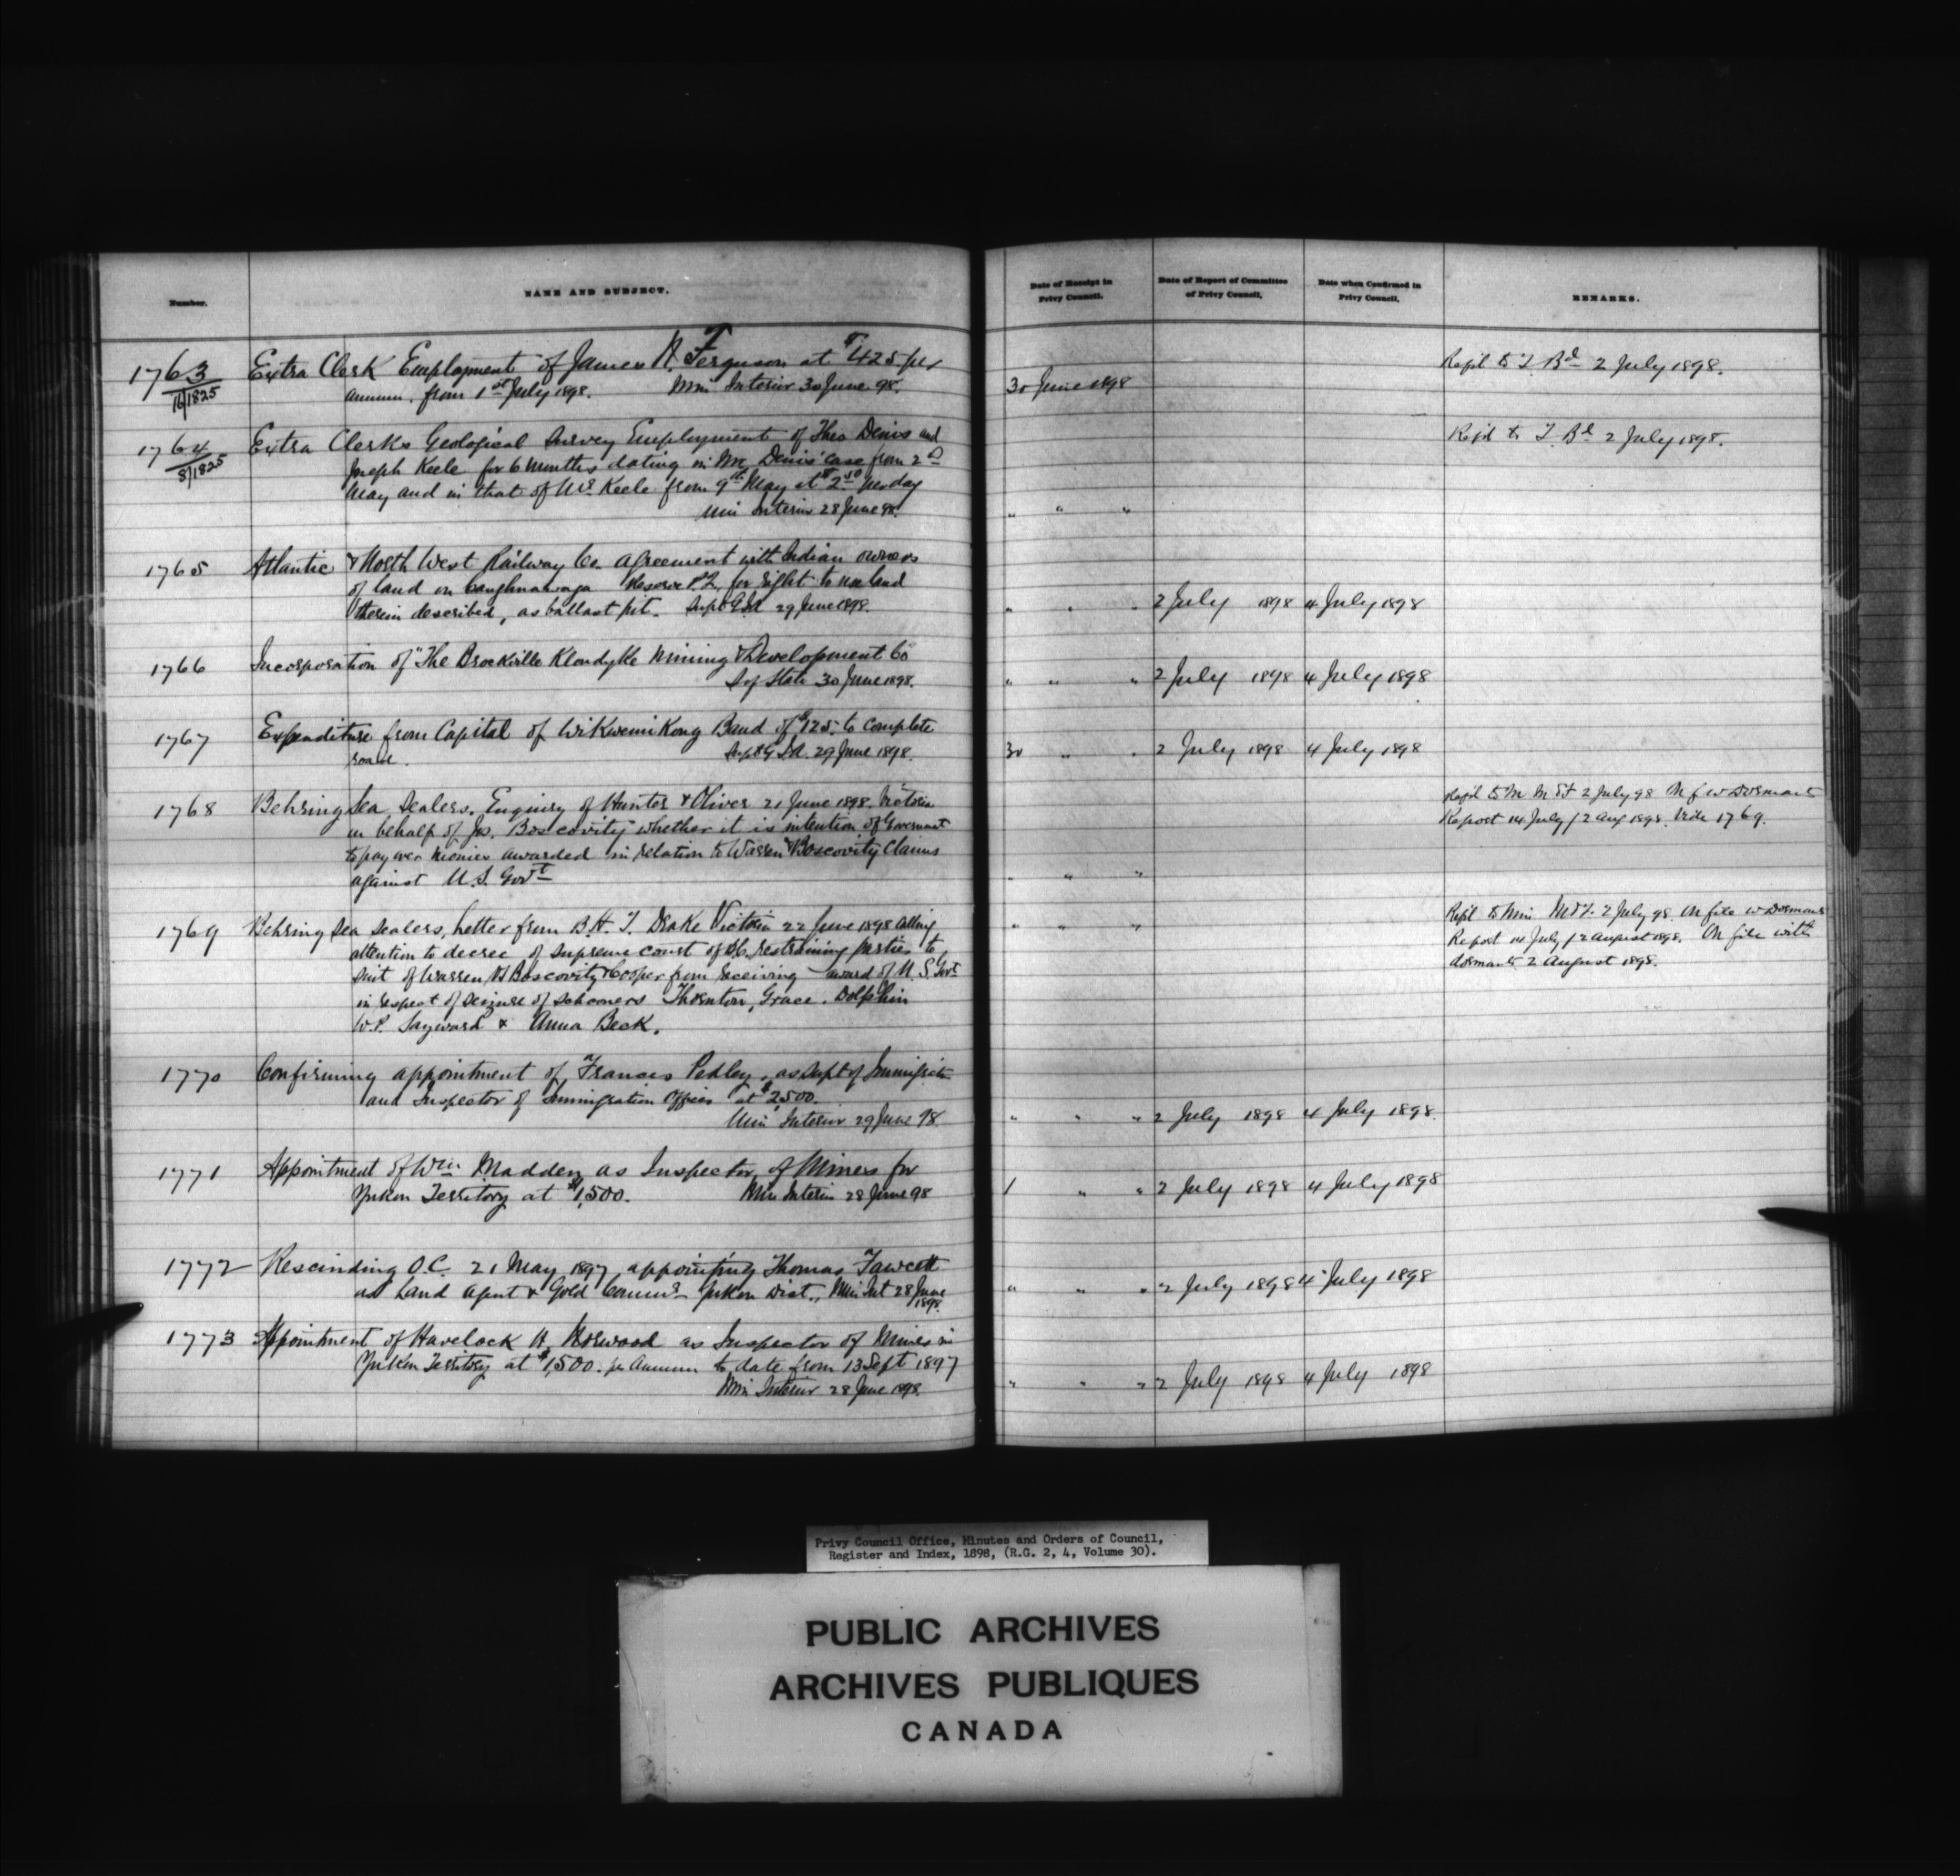 Number.
NAME AND SUBJECT.
Date of Receipt in
Privy Council.
Date of Report of Committee
of Privy Council.
Date when Confirmed in
Privy Council.
REMARKS.
1763
16/1825
Extra Clerk Employment of James H. T. Ferguson at $425 per
annum, from 1st July 1898. Min Interior 30 June 98
30 June 1898
Refd to T. Bd 2 July 1898.
1764
8/1825
Extra Clerks Geological Survey Employment of Theo Denis and
Joseph Keele for 6 months, dating in Mr Denis' case from 2d
May and in that of Mr Keele from 9th May at $2.50 per day
Min Interior 28 June 98.
" " "
Refd to T. Bd 2 July 1898.
1765
Atlantic & North West Railway Co. agreement with Indian owners
of land on Caughnawaga Reserve P.Q. for right to use land
therein described, as ballast pit. Supt G I A 29 June 1898.
" " " 2 July 1898 4 July 1898
1766
Incorporation of "The Brockville Klondyke Mining & Development Co
Sy State 30 June 1898.
" " " 2 July 1898 4 July 1898
1767
Expenditure from Capital of Wikwemikong Band of $125. to complete
road. Supt G I A. 29 June 1898.
30 " " 2 July 1898 4 July 1898
1768
Behring Sea Sealers. Enquiry of Hunter & Oliver 21 June 1898. Victoria
in behalf of Jos. Boscovity whether it is intention of Government
to pay over monies awarded in relation to Warren & Boscovity Claims
against U.S. Govt
" " "
Refd to M M & F 2 July 98 M f w Dormants
Report 14 July / 2 Aug 1898. Vide 1769.
1769
Behring Sea Sealers, Letter from B. H. T. Drake Victoria 22 June 1898 calling
attention to decree of Supreme Court of B.C. restraining parties to
suit of Warren vs Boscovity & Cooper from receiving award of U.S. Govt
in respect of seizure of schooners Thornton, Grace, Dolphin
W.P. Sayward & Anna Beck.
" " "
Refd to Min M & F. 2 July 98. On file w Dormants
Report 14 July / 2 August 1898. On file with
dormants 2 August 1898.
1770
Confirming appointment of Francis Pedley, as Supt of Immigration
and Inspector of Immigration Offices at $2500.
Min Interior 29 June 98.
" " " 2 July 1898 4 July 1898.
1771
Appointment of Wm Madden as Inspector of Mines for
Yukon Territory at $1,500. Min Interior 28 June 98
1 " " 2 July 1898 4 July 1898
1772
Rescinding O.C. 21 May 1897 appointing Thomas Fawcett
as Land Agent & Gold Commr Yukon Dist., Min Int 28 June
1898.
" " " 2 July 1898 4 July 1898
1773
Appointment of Havelock H. Norwood as Inspector of Mines in
Yukon Territory at $1,500. per Annum to date from 13 Sept 1897
Min Interior 28 June 1898.
" " " 2 July 1898 4 July 1898
Privy Council Office, Minutes and Orders of Council,
Register and Index, 1898, (R.G. 2, 4, Volume 30).
PUBLIC ARCHIVES
ARCHIVES PUBLIQUES
CANADA